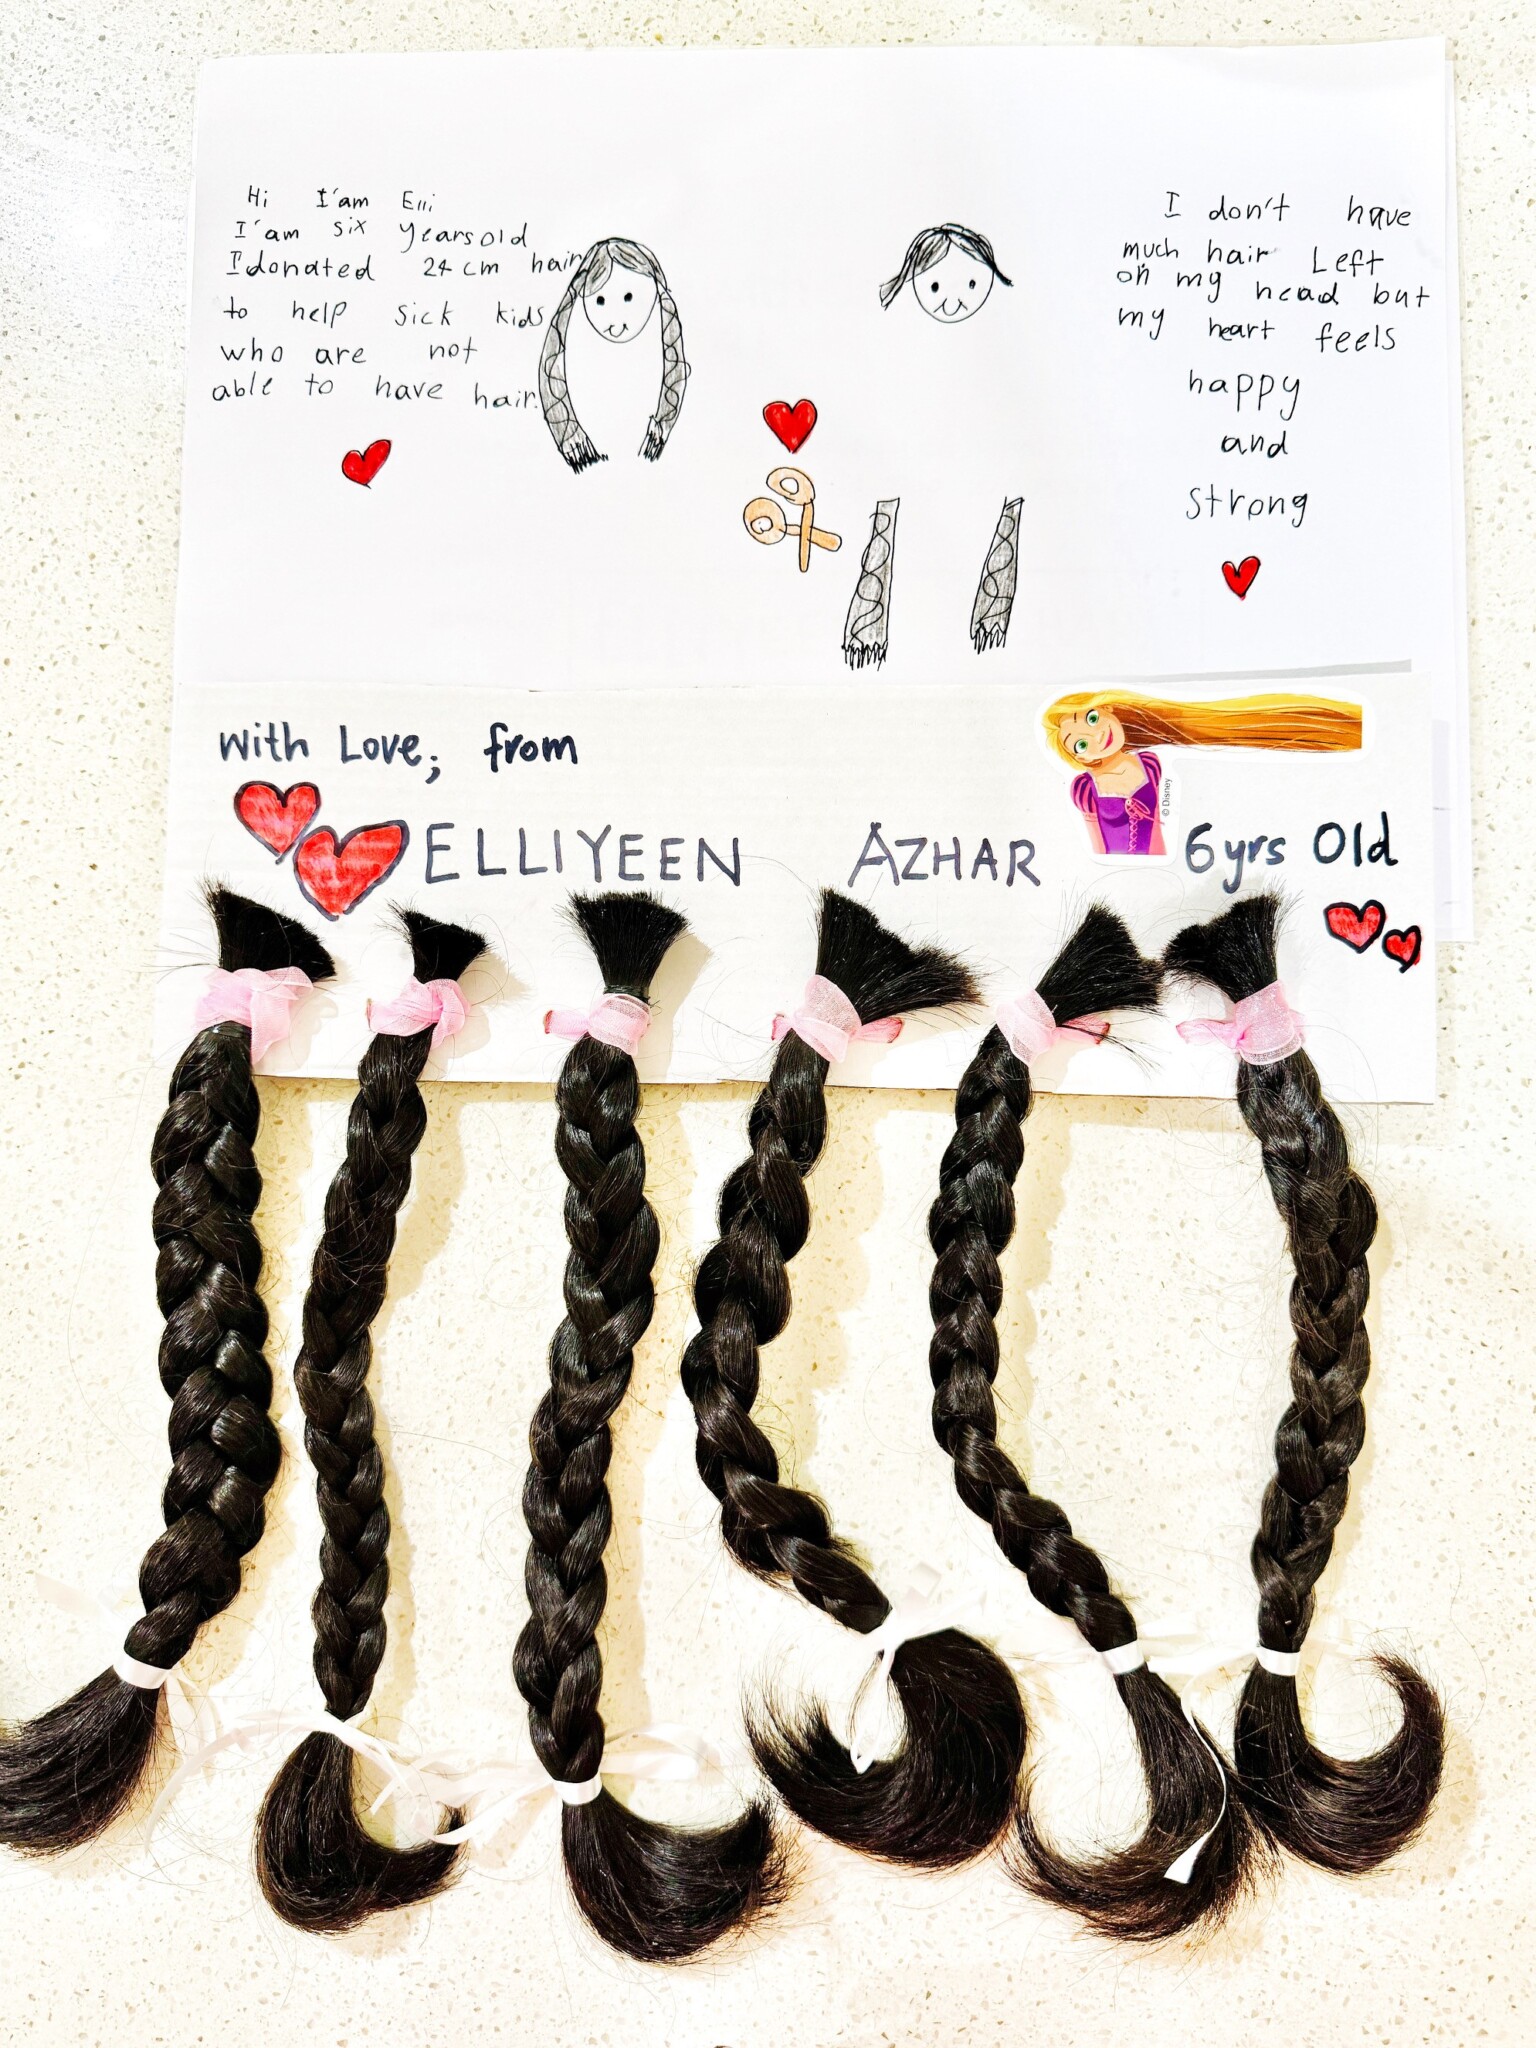 Hi I'am Elli
I'am six years old
I donated 24 cm hair
to help sick kids
who are not
able to have hair.
I don't have
much hair Left
on my head but
my heart feels
happy
and
strong
With Love, from
© Disney
ELLIYEEN AZHAR 6yrs Old